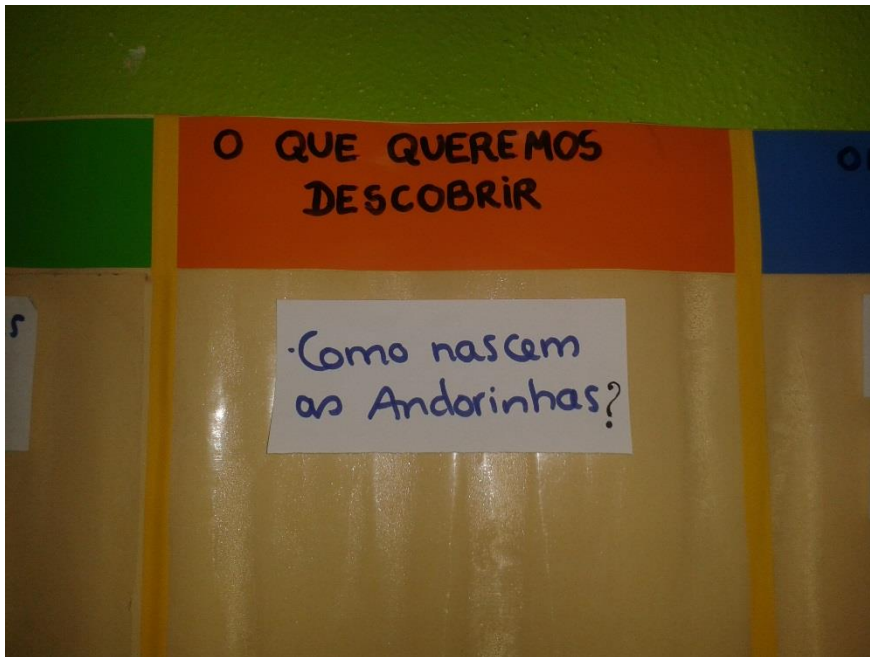 O QUE QUEREMOS
DESCOBRIR
·Como nascem
as Andorinhas?
s